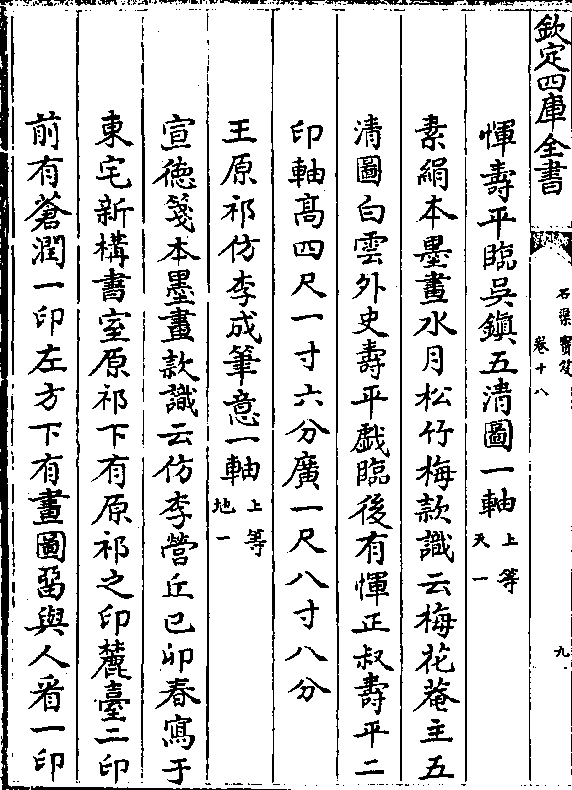 欽定四庫全書
石渠寶笈
卷十八
九
惲壽平臨吳鎮五清圖一軸上等天一
素絹本墨畫水月松竹梅款識云梅花菴主五
清圖白雲外史壽平戲臨後有惲正叔壽平二
印軸髙四尺一寸六分廣一尺八寸八分
王原祁仿李成筆意一軸上等地一
宣徳箋本墨畫款識云仿李營丘已卯春寫于
東宅新構書室原祁下有原祁之印麓臺二印
前有蒼潤一印左方下有畫圖留與人看一印